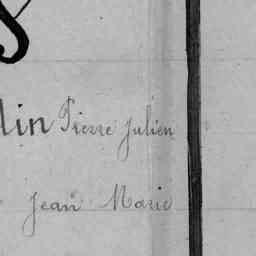 lin Pierre Julien
Jean Marie